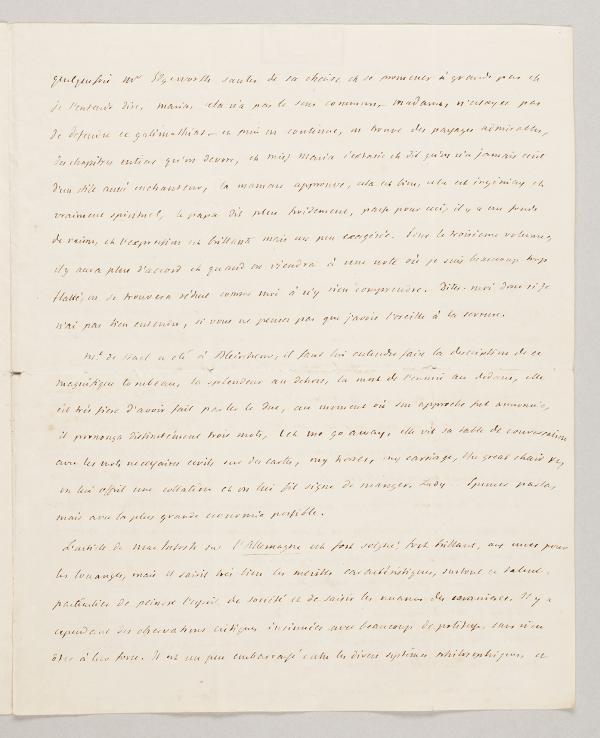 quelquefois Mr Edgeworth sauter de sa chaise et se promener à grands pas et
je l'entends dire, maria, cela n'a pas le sens commun, madame, n'essayez pas
de défendre ce galimathias. et puis on continue, on trouve des passages admirables,
des chapitres entiers qu'on dévore, et miss Maria s'extasie et dit qu'on n'a jamais écrit
d'un stile aussi enchanteur, la maman approuve, cela est bien, cela est ingénieux et
vraiment spirituel, le papa dit plus froidement, passe pour ceci, il y a un fonds
de raison, et l'expression est brillante mais un peu exagérée. Pour le troisieme volume,
il y aura plus d'accord et quand on viendra à une note où je suis beaucoup trop
flatté, on se trouvera réduit comme moi à n'y rien comprendre. Dites-moi donc si je
n'ai pas bien entendu, si vous ne pensez pas que j'avois l'oreille à la serrure.
Me de Stael a été à Bleinheim, il faut lui entendre faire la description de ce
magnifique tombeau, la splendeur au dehors, la mort de l'ennui au dedans, elle
est très fiere d'avoir fait parler le Duc, au moment où son approche fut annoncée,
il prononça distinctement trois mots, let me go away, elle vit sa table de conversation
avec les mots necessaires écrits sur des cartes, my horses, my carriage, the great chair &c,
on lui offrit une collation et on lui fit signe de manger, Lady Spencer parla,
mais avec la plus grande economie possible.
L'article de Mackintosh sur l'Allemagne est fort soigné, fort brillant, aux uns pour
les louanges, mais il saisit très bien les mérites caractéristiques, surtout ce talent
particulier de peindre l'esprit de société et de saisir les nuances des caracteres. Il y a
cependant des observations critiques insinuées avec beaucoup de politesse, sans rien
ôter à leur force. Il est un peu embarrassé entre les divers systèmes philosophiques, et